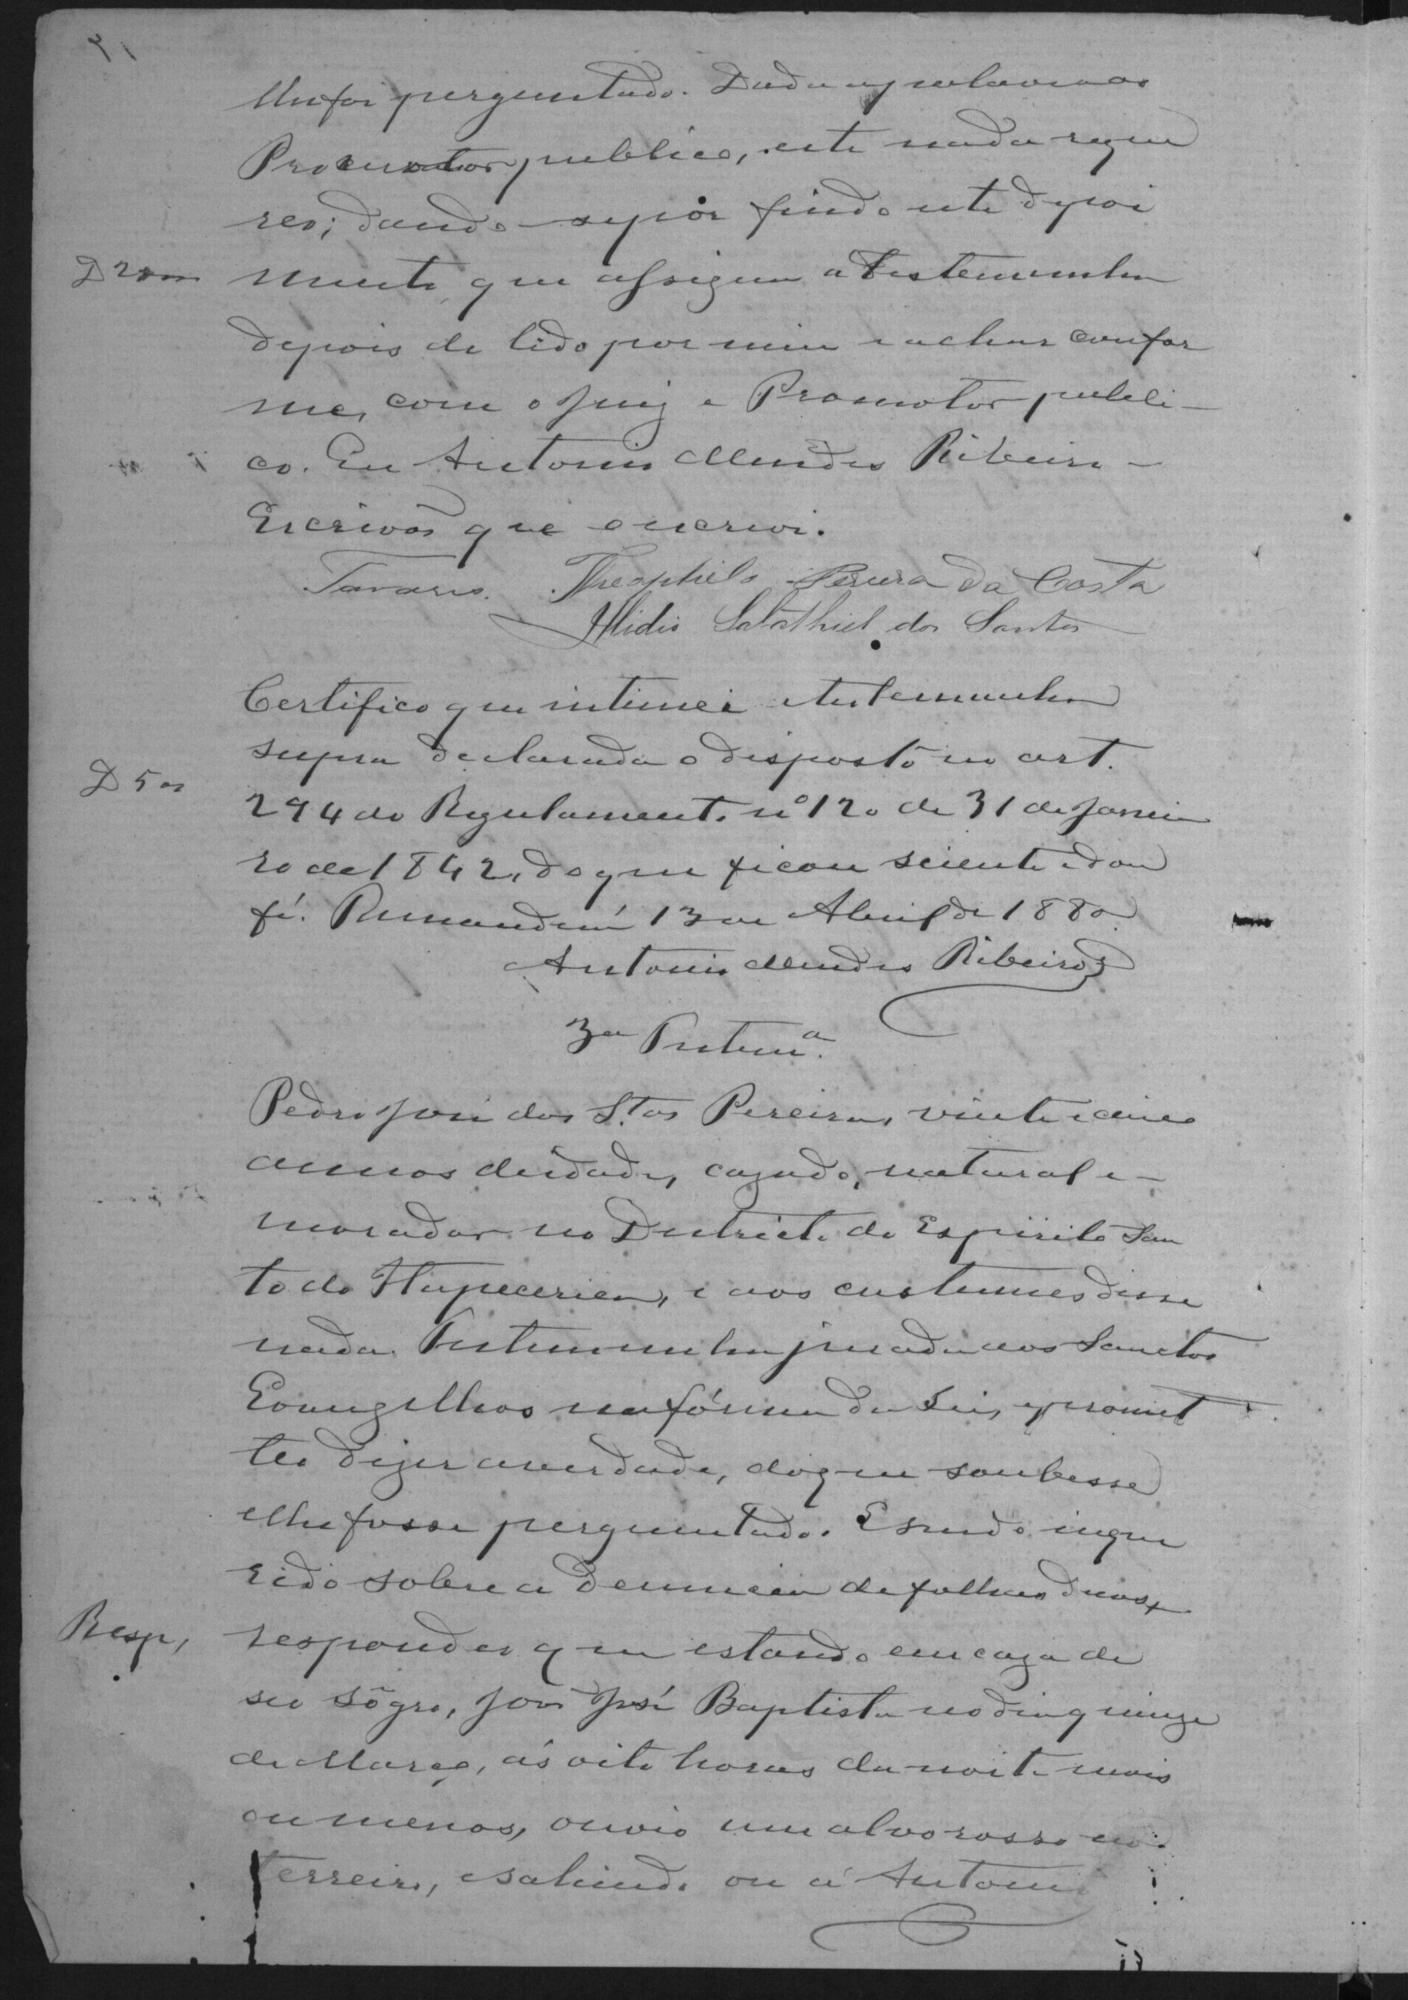 lhe foi perguntado. Dada a palavra ao
Promotor publico, este nada reque
reo; dando-se por findo este depoi
mento que assigna a Testemunha
depois de lido por mim e achar confor
me, com o Juiz e Promotor publi-
co. Eu Antonio Mendes Ribeiro -
Escrivão que o escrevi.
Tavares. Theophilo Pereira da Costa
Illidio Salathiel dos Santos
Certifico que intimei a testemunha
supra declarada o disposto no art.
294 do Regulamento nº 120 de 31 de Janei
D 500
ro de 1842, do que ficou sciente e dou
fé. 13 de Abril de 1880
Antonio Mendes Ribeiro
3ª Testemª.
Pedro José dos S.tos Pereira, vinte e cinco
annos de idade, cazado, natural e -
morador no Districto do Espirito San
to do Itapecerica, e aos custumes disse
nada. Testemunha jurada aos Sanctos
Evangelhos na fórma da Lei, e promet
teo dizer a verdade, do que soubesse
e lhe fosse perguntado. E sendo inque
rido sobre a denuncia de folhas duas,
Resp,
respondeo que estando em caza de
seo sôgro, João José Baptista no dia quinze
de Março, ás oito horas da noite mais
ou menos, ouvio um alvorosso no
terreiro, e sahindo ou a Antonio